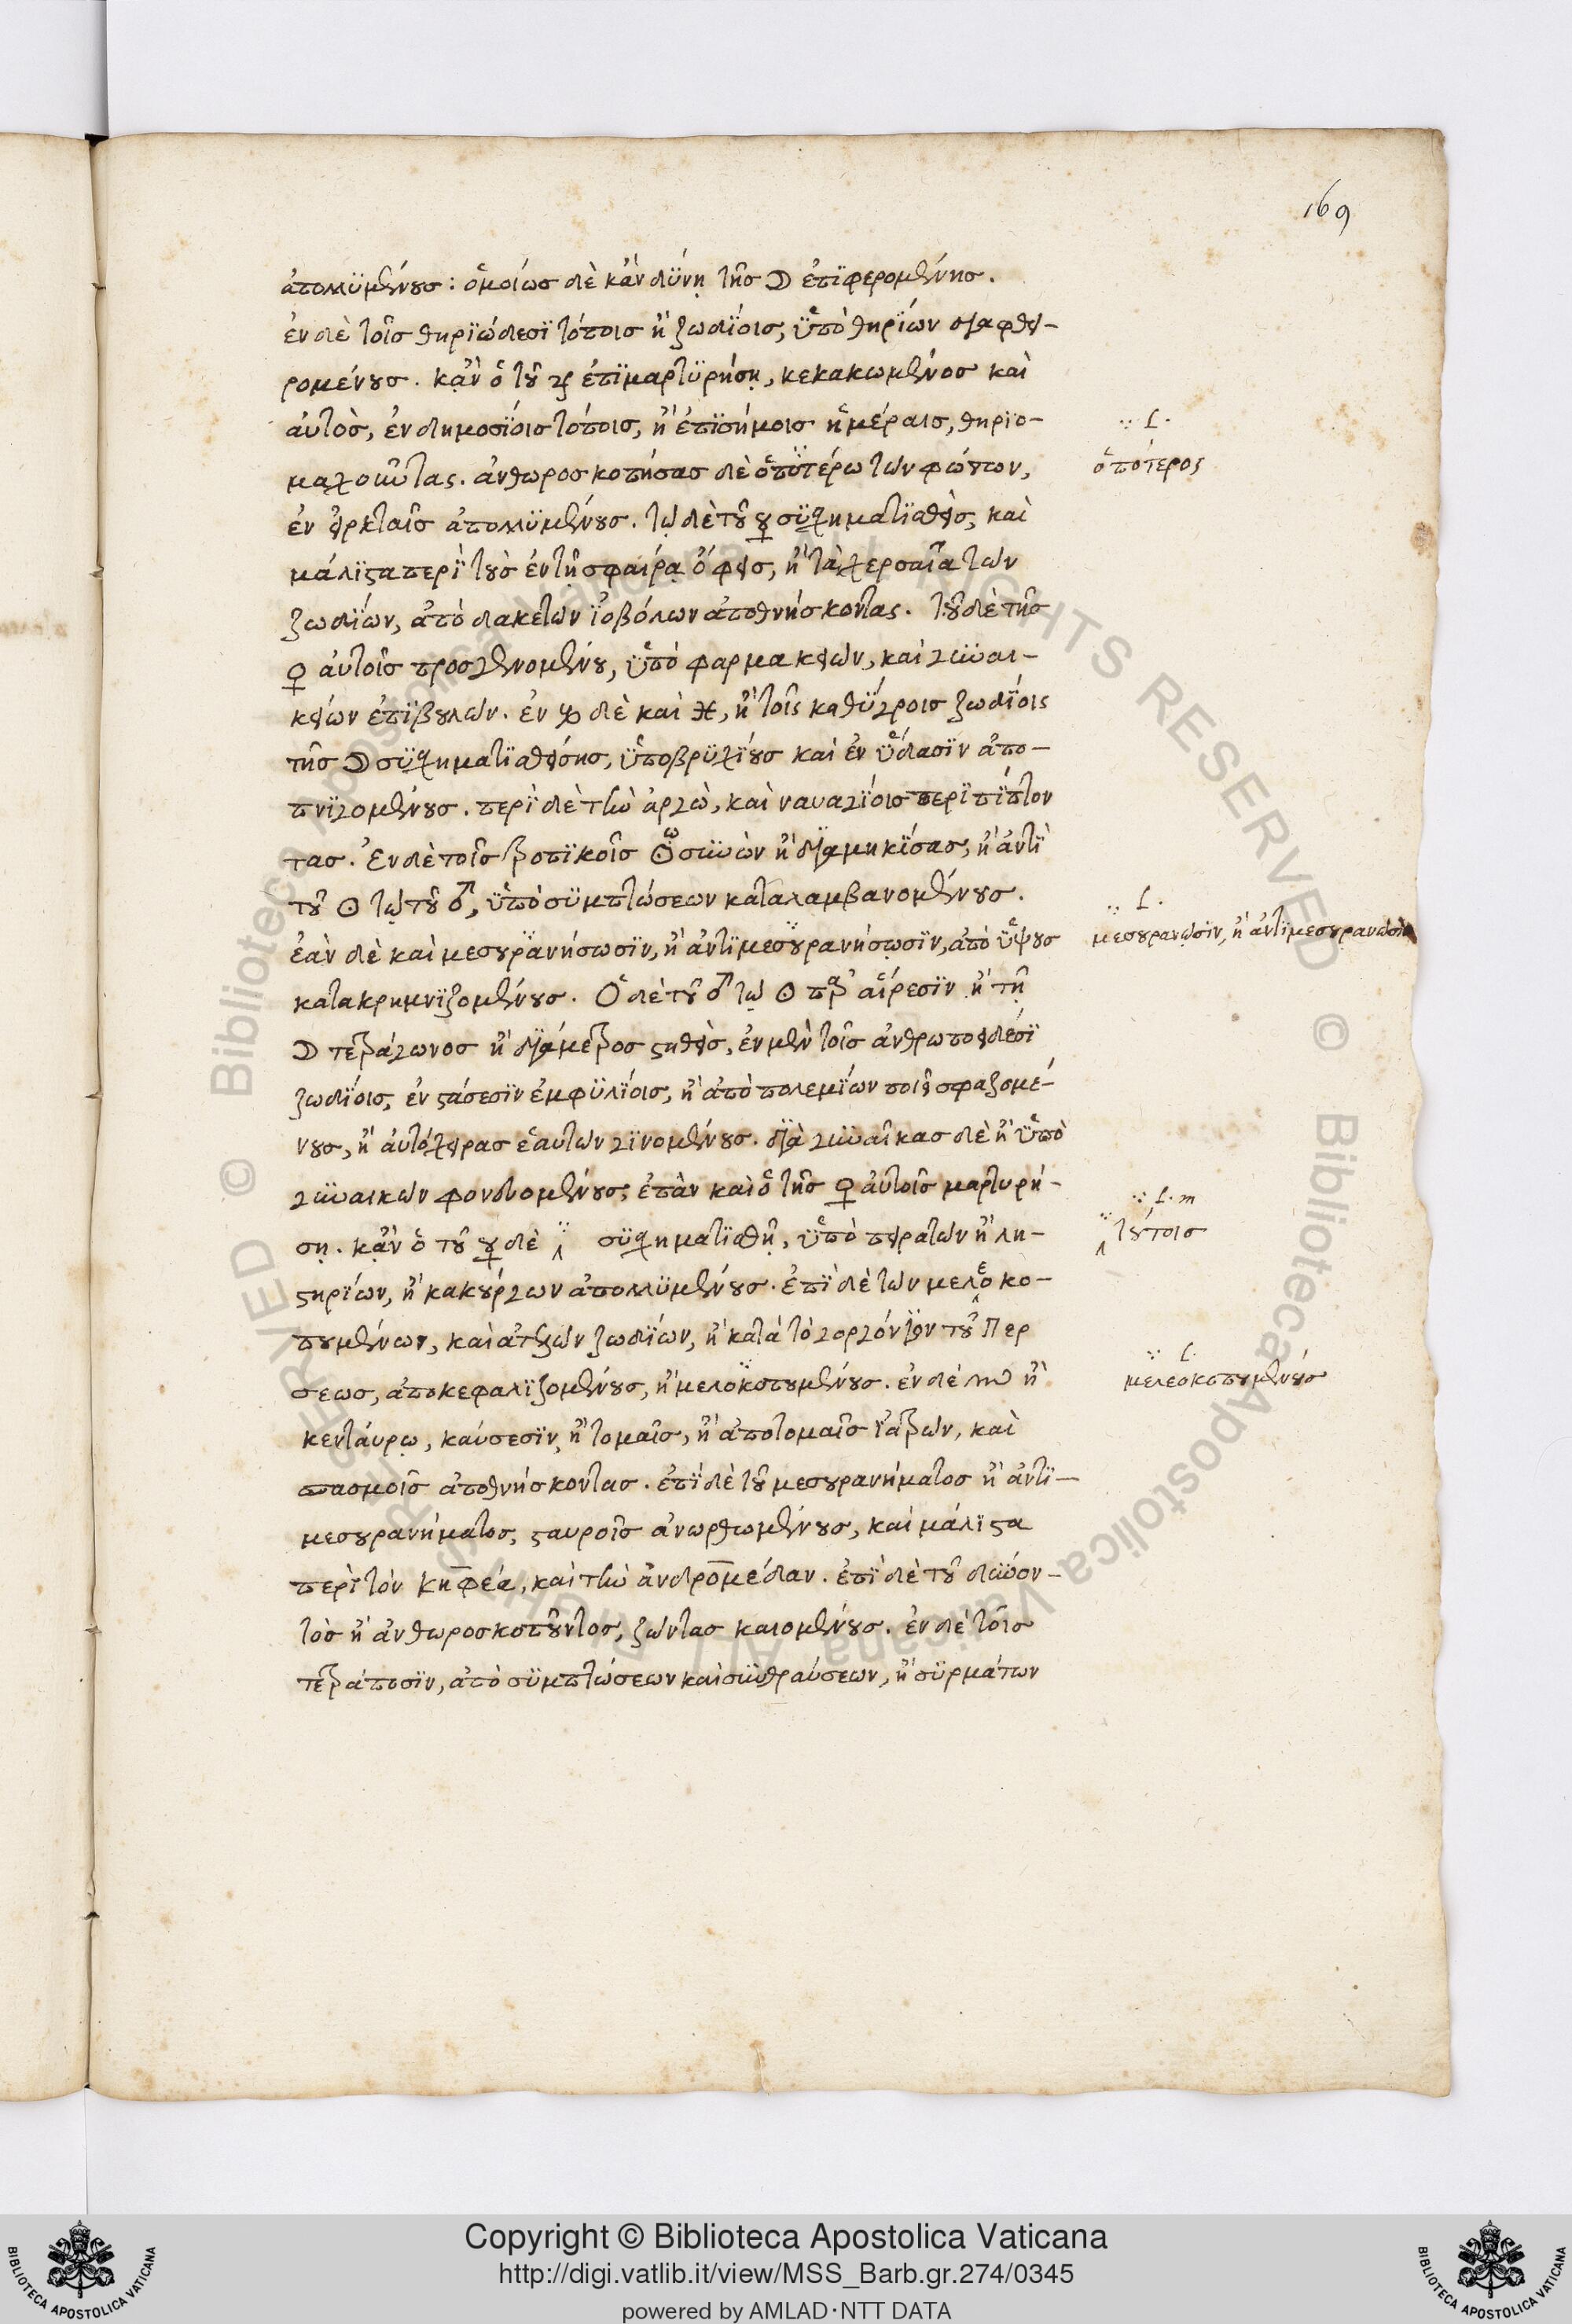 169
ἀπολλϋμένους : ὁμοίως δὲ κἂν δύνῃ τῆς ☽ ἐπϊφερομένης.
ἐν δὲ τοῖς θηρϊώδεσϊ τόποις ἢ ζωδϊοις, ϋπὸ θηρϊων διαφθει-
ρομένους. κἂν ὁ τοῦ ♃ ἐπϊμαρτϋρήσῃ, κεκακωμένος καὶ
αὐτὸς, ἐν δημοσϊοις τόποις, ἢ ἐπϊσήμοις ἡμέραις, θηριο-
μαχοῦντας. ἀνθωροσκοπήσας δὲ ὁποτέρω τῶν φώτων,
ἐν εἱρκταῖς ἀπολλϋμένους. τῷ δὲ τοῦ ☿ σϋσχηματϊσθεὶς, καὶ
μάλϊστα περὶ τοὺς ἐν τῇ σφαίρᾳ ὄφεις, ἢ τὰ χερσαῖα τῶν
ζωδϊων, ἀπὸ δακετῶν ϊοβόλων ἀποθνήσκοντας. τοῦ δὲ τῆς
♀ αὐτοῖς προσγενομένου, ϋπὸ φαρμακειῶν, καὶ γυναι-
κείων ἐπϊβουλῶν. ἐν ♍ δὲ καὶ ♓, ἢ τοῖς καθύγροις ζωδϊοις
τῆς ☽ σϋσχηματϊσθείσης, ϋποβρϋχϊους καὶ ἐν ϋδασϊν ἀπο-
πνϊγομένους. περὶ δὲ τὴν ἀργὼ, καὶ ναυαγϊοις περϊπϊπτον
τας. Ἐν δὲ τοῖς τροπϊκοῖς ☉ῳ συνὼν ἢ διαμηκϊσας, ἢ ἀντὶ
τοῦ ☉ τῷ τοῦ ♂, ϋπὸ σϋμπτώσεων καταλαμβανομένους.
ἐὰν δὲ καὶ μεσουρανήσωσϊν, ἢ ἀντϊμεσουρανήσωσϊν, ἀπὸ ϋψους
κατακρημνϊζομένους. Ὁ δὲ τοῦ ♂ τῷ ☉ παρ' αἵρεσϊν ἢ τῇ
☽ τετράγωνος ἢ διάμετρος σταθεὶς, ἐν μὲν τοῖς ἀνθρωποειδέσϊ
ζωδϊοις, ἐν στάσεσϊν ἐμφϋλϊοις, ἢ ἀπὸ πολεμϊων ποιεῖ σφαζομέ-
νους, ἢ αὐτόχειρας ἑαυτῶν γϊνομένους. διὰ γυναῖκας δὲ ἢ ϋπὸ
γυναικῶν φονευομένους, ἐπὰν καὶ ὁ τῆς ♀ αὐτοῖς μαρτυρή-
σῃ. κἂν ὁ τοῦ ☿ δὲ σϋσχηματϊσθῇ, ϋπὸ πειρατῶν ἢ λη-
στηρϊων, ἢ κακούργων ἀπολλϋμένους. ἐπὶ δὲ τῶν μελεοκο-
πουμένων, καὶ ἀτελῶν ζωδϊων, ἢ κατὰ τὸ γοργόνϊον τοῦ Περ
σεως, ἀποκεφαλϊζομένους, ἢ μελοκοπουμένους. ἐν δὲ ♏ ἢ
κενταύρῳ, καύσεσϊν, ἢ τομαῖς, ἢ ἀποτομαῖς ϊατρῶν, καὶ
σπασμοῖς ἀποθνήσκοντας. ἐπὶ δὲ τοῦ μεσουρανήματος ἢ ἀντϊ-
μεσουρανήματος, σταυροῖς ἀνωρθωμένους, καὶ μάλϊστα
περὶ τὸν Κηφέα, καὶ τὴν ἀνδρομέδαν. ἐπὶ δὲ τοῦ δύνον-
τος ἢ ἀνθωροσκοποῦντος, ζῶντας καιομένους. ἐν δὲ τοῖς
τετράποσϊν, ἀπὸ σϋμπτώσεων καὶ συνθραύσεων, ἢ σϋρμάτων
∵ L.
ὁπότερος
∵ L.
μεσουρανῶσϊν, ἢ ἀντϊμεσουρανῶσϊν
∵ L. m
τούτοις
∵ L.
μελεοκοπουμένους
© Biblioteca Apostolica Vaticana ALL RIGHTS RESERVED © Biblioteca Apostolica Vaticana ALL RIGHTS RESERVED
Copyright © Biblioteca Apostolica Vaticana
http://digi.vatlib.it/view/MSS_Barb.gr.274/0345
powered by AMLAD·NTT DATA
BIBLIOTECA APOSTOLICA VATICANA
BIBLIOTECA APOSTOLICA VATICANA